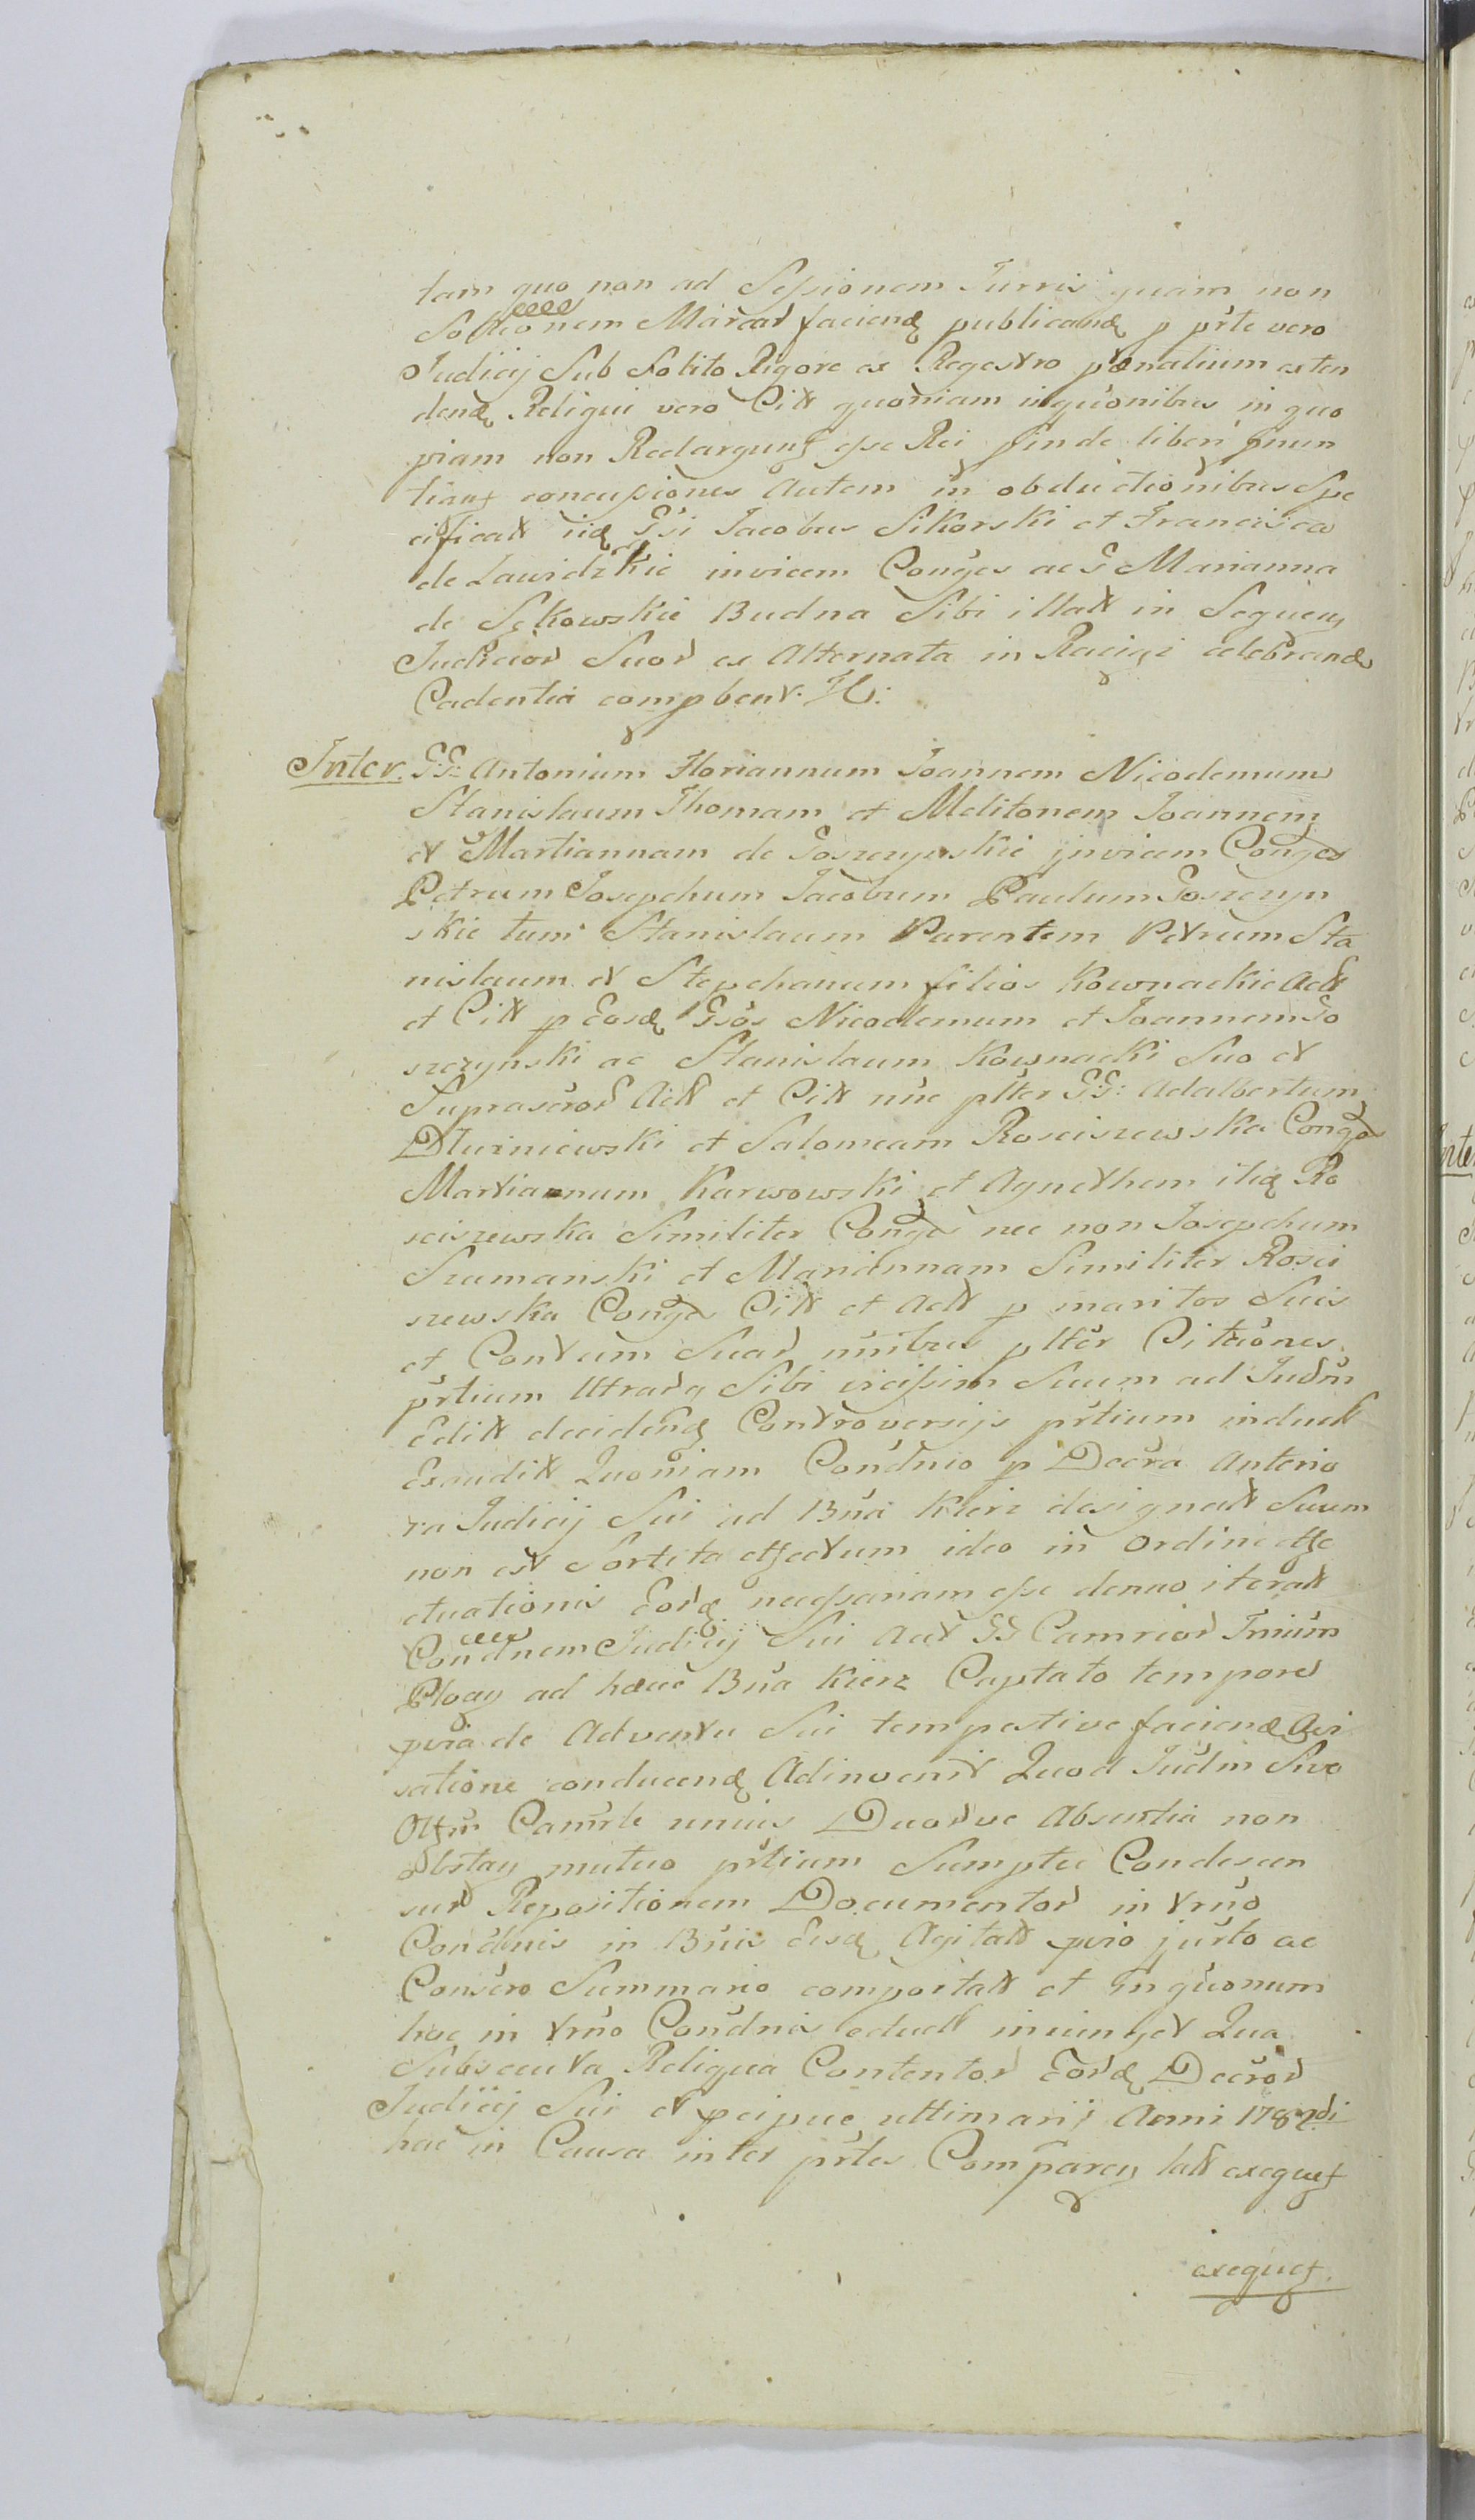 tam quo non ad Sessionem Turris quam non
Solutionem Marcar faciend publicand p prte vero
Judicij Sub Solito Rigore ex Regestro pænalium exten
dend Reliqui vero Citt quoniam inquonibus in quo
piam non Redarguunt esse Rei
concussiones Autem in obductionibus Spe
cificatt iid Gsi Jacobus Sikorski et Francisca
de Lawidzkie invicem Conges ac G Marianna
de Sękowskie Budna Sibi illatt in Sequen
Judicior Suor ex Alternata in Raciąż celebrand
Cadentia compbent. H:
Inter. GG: Antonium Floriannum Joannem Nicodemum
Stanislaum Thomam et Melitonem Joannem
et Martiannam de Goszczynskie jnvicem Conges
Petrum Josephum Jacobum Paulum Goszczyn
skie tum Stanislaum Parentem Petrum Sta
nislaum et Stephanum filios Kownackie Actt
et Citt p Eosd Gsos Nicodemum et Joannem Go
szczynski ac Stanislaum Kownacki Suo et
Suprascror Actt et Citt nne plter GG: Adalbertum
Dłuzniewski et Salomeam Rosciszewska Conges
Martiannum Karwowski et Agnethem itid Ro
sciszewska Similiter Conges nec non Josephum
Szumanski et Mariannam Similiter Rosci
szewska Conges Citt et Actt p maritos Suis
et Contum Suar nnibus plter Citaones
prtium Utrarq Sibi vicissim Suum ad Judm
Editt decidend Controversijs prtium induct
Exauditt Quoniam Condnio p Decra Anterio
ra Judicij Sui ad Bna Kierz designatt Suum
non est Sortita effectum ideo in Ordine effe
ctuationis Eord necessariam esse denuo iteratt
Condnem Judicij Sui Aut GG Camrior Trium
Plocen ad hæce Bna Kierz Captato tempore
pvia de Adventu Sui tempestive faciend Avi
satione conducend Adinvenit Quod Judm Sive
Offm Camrle unius Duorve Absentia non
Obstan mutuo prtium Sumptu Condescen
sur Repositionem Documentor in trno
Condnis in Bnis Eisd Agitatt pvio jurto ac
Conscro Summario comportatt et Inquonum
hac in trno Condnis educt iniunget Qua
Subsecuta Reliqua Contentor Eord Decror
Judicij Sui et pcipue ultimarij Anni 1782di
hac in Causa inter prtes Comparen latt exequet
exequet